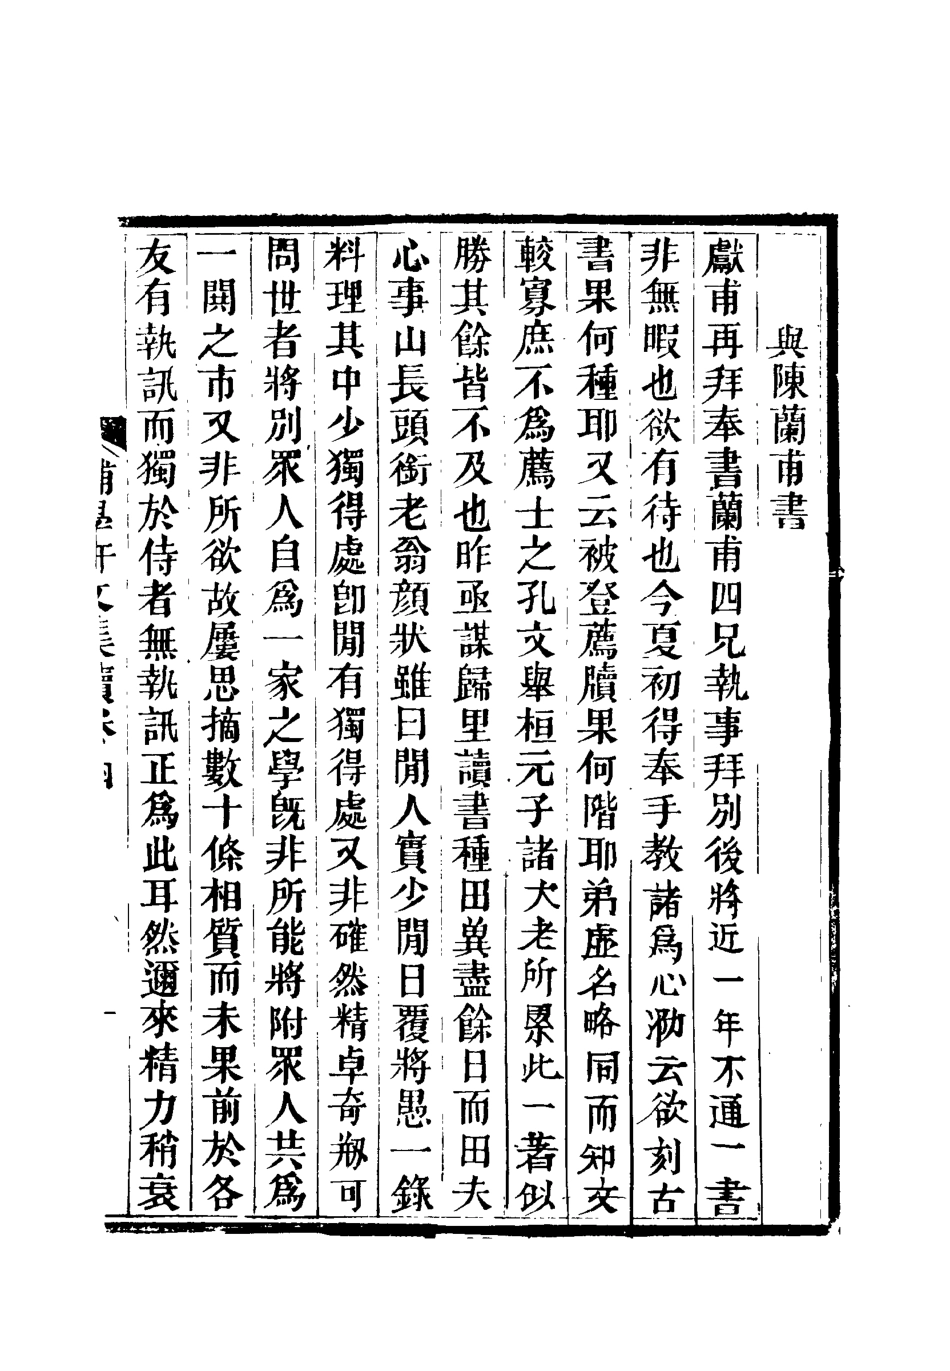 與陳蘭甫書
獻甫再拜奉書蘭甫四兄執事拜別後將近一年不通一書
非無暇也欲有待也今夏初得奉手教諸爲心泐云欲刻古
書果何種耶又云被登薦牘果何階耶弟虛名略同而知交
較寡庶不爲薦士之孔文舉桓元子諸大老所累此一著似
勝其餘皆不及也昨亟謀歸里讀書種田兾盡餘日而田夫
心事山長頭銜老翁顏狀雖曰閒人實少閒日覆將愚一錄
料理其中少獨得處卽閒有獨得處又非確然精卓奇剏可
問世者將別眾人自爲一家之學旣非所能將附眾人共爲
一鬨之市又非所欲故屢思摘數十條相質而未果前於各
友有執訊而獨於侍者無執訊正爲此耳然邇來精力稍衰
補學軒文集續卷四
一